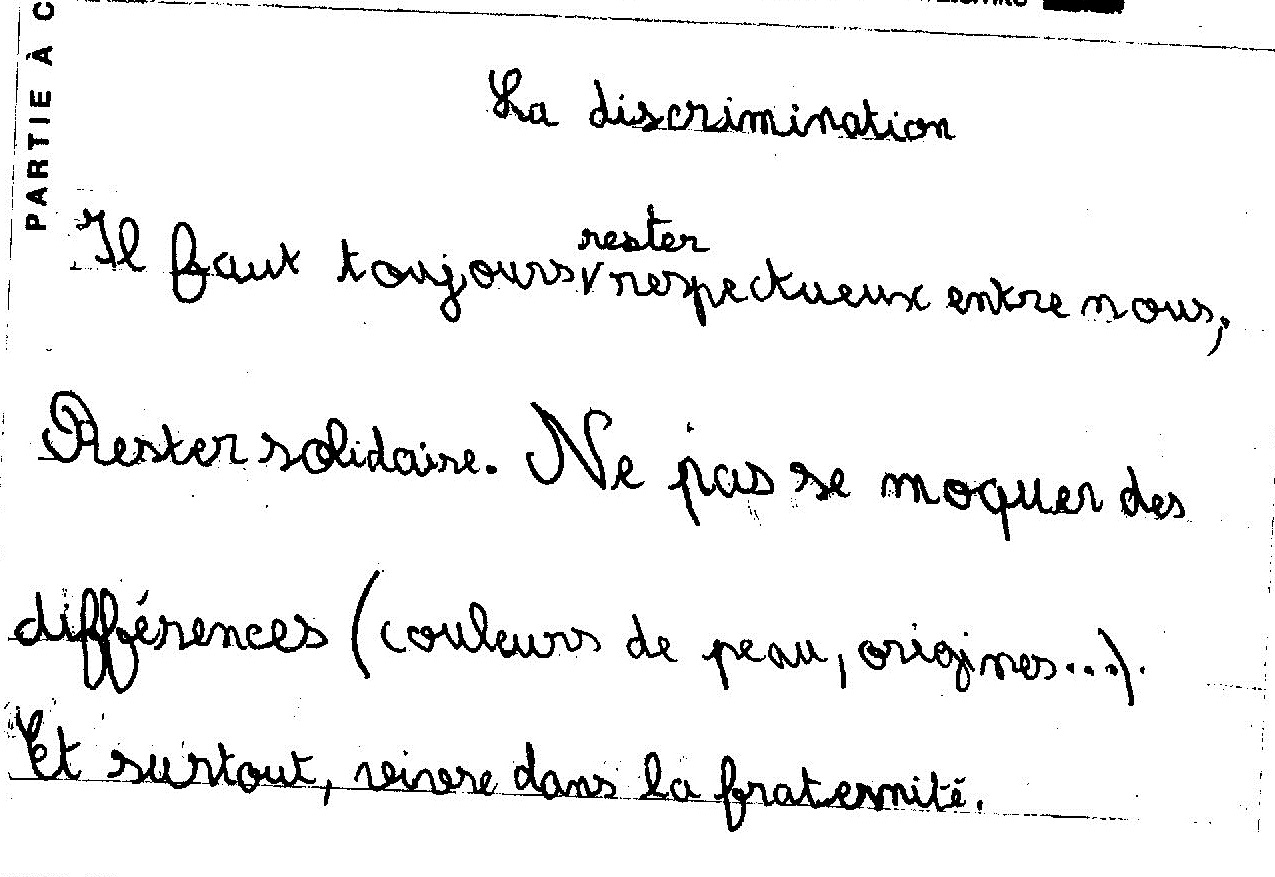 PARTIE À C
La discrimination
Il faut toujours rester respectueux entre nous,
Rester solidaire. Ne pas se moquer des
différences (couleurs de peau, origines...).
Et surtout, vivre dans la fraternité.